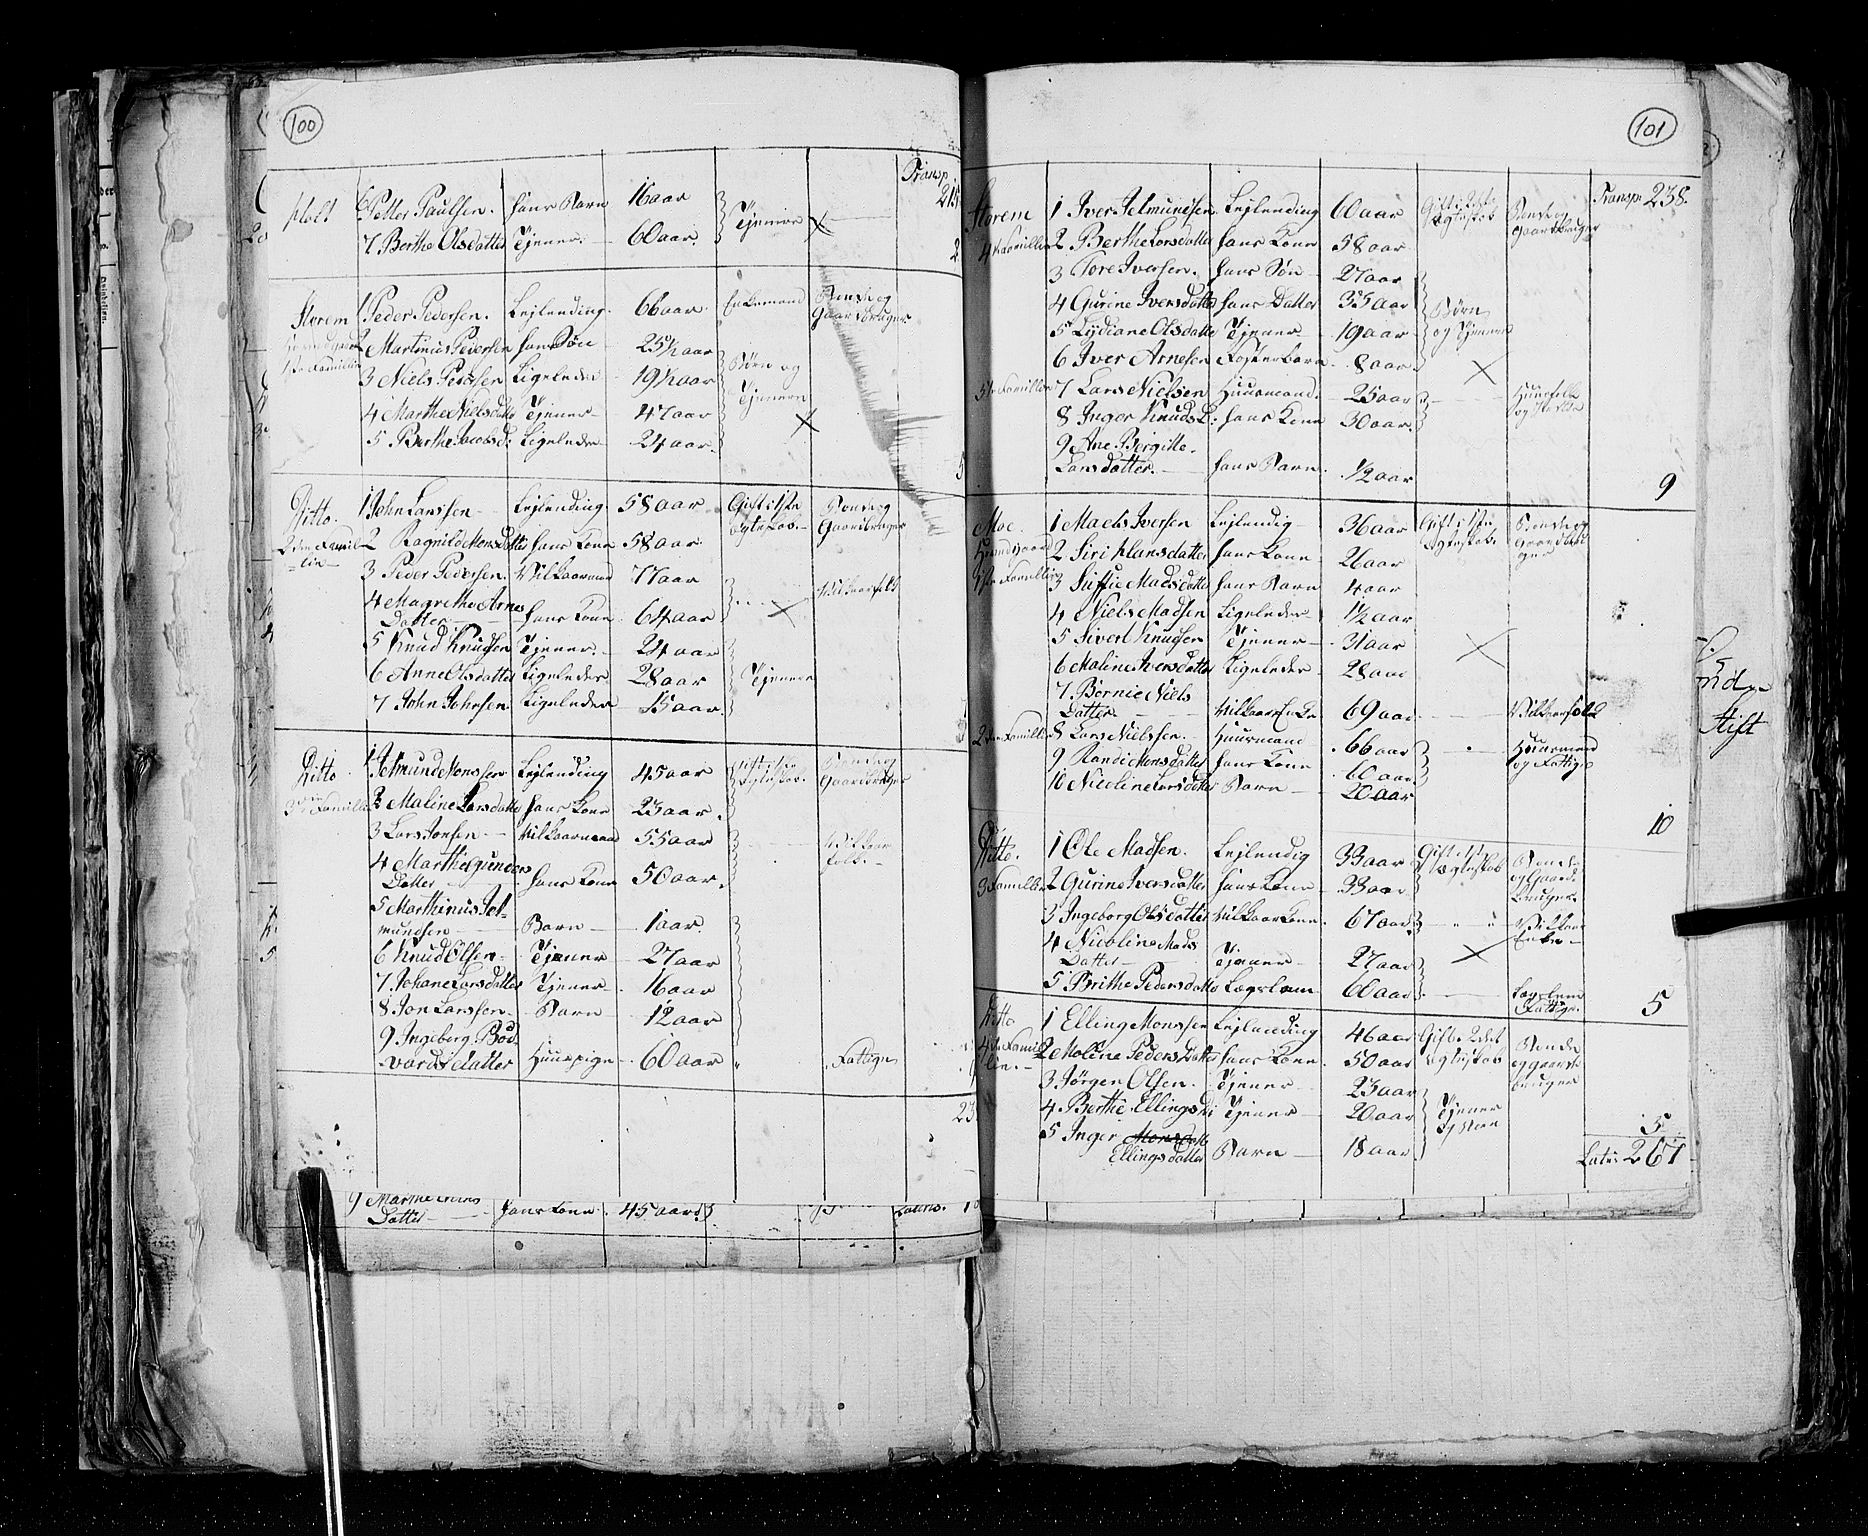 100
Transp
Holt 6 Petter Paulsen. hans Barn 16 aar Tjenere 215
7 Berthe Olsdatter Tjener. 60 aar. 2
Storem 1 Peder Pedersen. Lejlending. 66 aar. Enkemand Bonde og
Gaardbruger
2 Martinus Pedersen hans Søn 25½ aar
1ste Familie 3 Niels Pedersen Ligeleder 19½ aar Børn og
4 Marthe Nielsdatter Tjener 47 aar Tjenere
5 Berthe Jacobsd: Ligeleder 24 aar. 5
Ditto. 1 John Larssen Lejlending 58 aar Gift i 1ste Bonde og
Egteskab. Gaardbruger
2den Famil- 2 Ragnild Monsdatter hans Kone 58 aar
lie 3 Peder Pedersen. Vilkaarmand 77 aar Vilkaarfolk
4 Magrethe Arnes
Datter hans Kone 64 aar
5 Knud Knudsen Tjener. 24 aar
6 Anne Olsdatter Ligeleder 28 aar Tjenere
7 John Johnsen. Ligeleder 15 aar.
Ditto. 1 Jetmund Monssen Lejlending 45 aar Gift i 1ste Bonde og
Egteskab. Gaardbruger
3die Familie 2 Maline Larsdatter hans Kone 23 aar
3 Lars Jonsen Vilkaarmand 55 aar Vilkaar
folk.
4 Marthe Gunders
Datter hans Kone 50 aar.
5 Marthinus Jet-
mundsen Barn 1 aar.
6 Knud Olsen Tjener 27 aar
7 Johane Larsdatter Tjener 16 aar
8 Jon Larssen Barn 12 aar
9 Ingeberg Bod
vardsdatter Huuspige 60 aar Fattige
23
9 Marthe
Datter hans Kone. 45 aar. Lateris.
101
Transp: 238.
Storem 1 Iver Jetmundsen. Lejlending 60 aar Gift i 2det Bonde og
Egteskab Gaardbruger
4de Familie 2 Berthe Larsdatter hans Kone 58 aar
3 Tore Iversen. hans Søn 27 aar
4 Gurine Iversdatter hans Datter 35 aar Børn
5 Lydiane Olsdatter Tjener 19 aar og Tjenere
6 Iver Arnesen Fosterbarn. 8 aar.
5te Familie 7 Lars Nielsen Huusmand. 25 aar Huusfolk
8 Inger Knudsd: hans Kone 30 aar.
9 Ane Birgitte.
Larsdatter. hans Barn. ½ aar 9
Moe. 1 Mads Iversen Lejlendig 36 aar Gift i 1ste Bonde og
Egteskab. Gaardbru
ger
2 Siri Hansdatter hans Kone 26 aar
1ste Familie 3 Siffie Madsdatter hans Barn 4 aar
4 Niels Madsen Ligeleder 1½ aar
5 Sivert Knudsen Tjener 31 aar
6 Maline Iversdatter Ligeleder 28 aar
7 Bernie Niels
Datter. Vilkaars Enke 69 aar Vilkaarfolk
2den Familie 8 Lars Nielssen. Huusmand 66 aar Huusmand
og Fattige
9 Randi Monsdatter hans Kone 60 aar
10 Nicoline Larsdatter Barn 20 aar
10
Ditto. 1 Ole Madsen. Lejlendig 33 aar Gift i 1ste Bonde
Egteskab og Gaard-
bruger
3 Familie 2 Gurine Iversdatter hans Kone 33 aar
3 Ingeborg Olsdatter Vilkaar Kone. 67 aar. Vilkaar
Enke
4 Nicoline Mads
Datter Tjener 27 aar
5 Brithe Pedersdatter Lægslem 60 aar Lægslem
Fattige. 5
Ditto 1 Elling Monssen Lejlending 46 aar Gift i 2det Bonde
Egteskab og gaard
bruger
4de Famil 2 Moline Peders Datter hans Kone. 50 aar
lie. 3 Jørgen Olsen. Tjener 23 aar
4 Berthe Ellingsd: Tjener 20 aar Tjener
og Børn
5 Inger Monsdatter
Ellingsdatter Barn 18 aar. 5
Latus 267
Stift